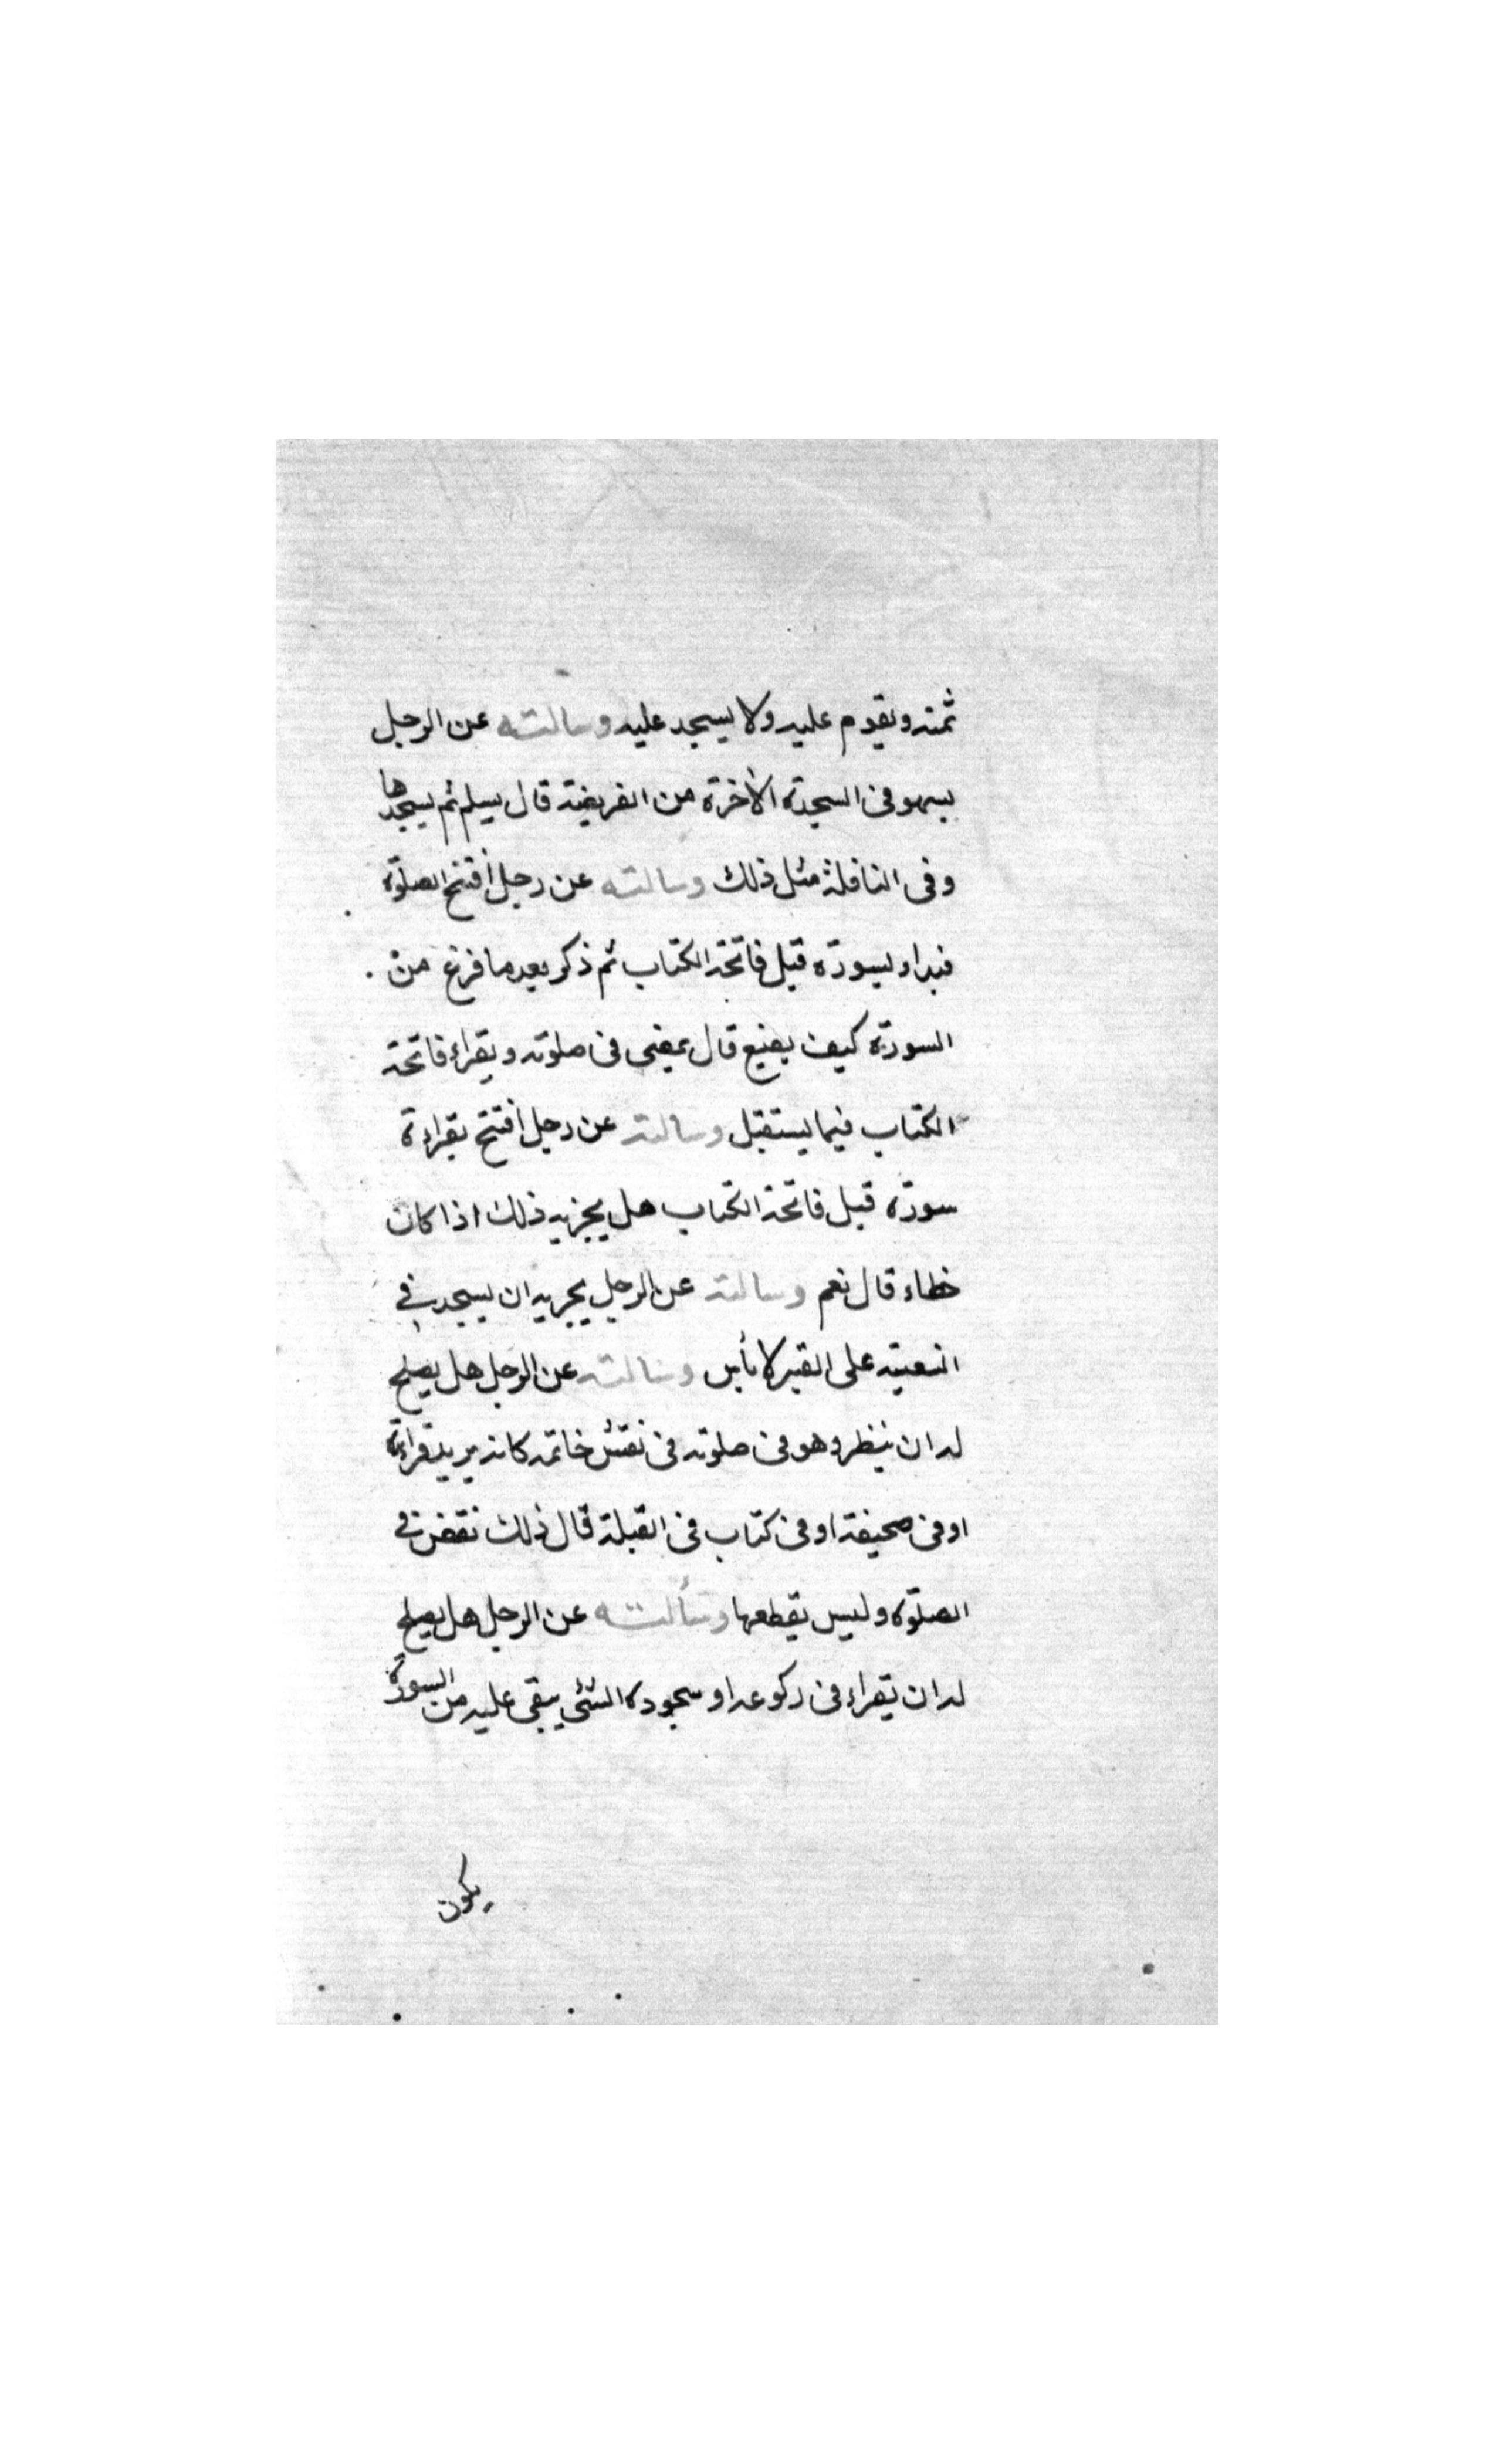 ثمنه ويقوم عليه ولا يسجد عليه وسالته عن الرجل
يسهو في السجدة الأخرة من الفريضة قال يسلم ثم يسجدها
وفي النافلة مثل ذلك وسالته عن رجل أفتتح الصلوة
فبداء بسورة قبل فاتحة الكتاب ثم ذكر بعد ما فرغ من
السورة كيف يصنع قال يمضي في صلوته ويقراء فاتحة
الكتاب فيما يستقبل وسالته عن رجل أفتتح بقراءة
سورة قبل فاتحة الكتاب هل يجزيه ذلك اذا كان
خطاء قال نعم وسالته عن الرجل يجزيه ان يسجد في
السفينة على القير لا بأس وسالته عن الرجل هل يصلح
له ان ينظر وهو في صلوته في نقش خاتمه كانه يريد قراءته
او في صحيفة او في كتاب في القبلة قال ذلك نقض في
الصلوة وليس يقطعها وسألته عن الرجل هل يصلح
له ان يقراء في ركوعه او سجوده الشئ يبقى عليه من السورة
يكون